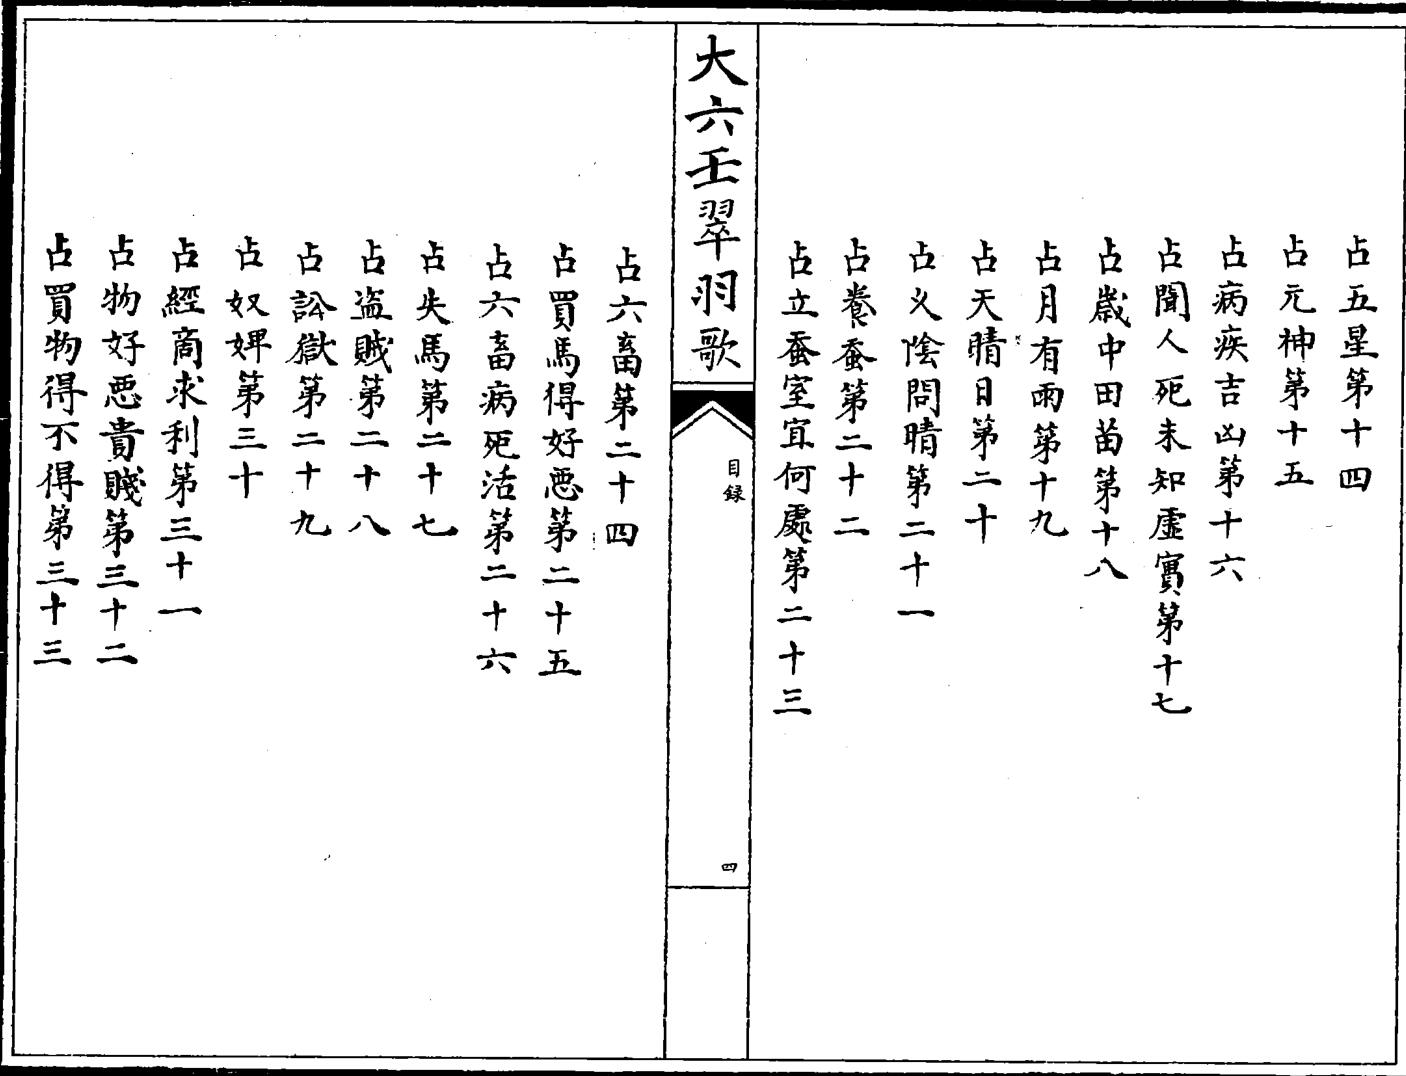 占五星第十四
占元神第十五
占病疾吉凶第十六
占聞人死未知虛實第十七
占歲中田苗第十八
占月有雨第十九
占天晴日第二十
占乆陰問晴第二十一
占養蚕第二十二
占立蚕室宜何處第二十三
大六壬翠羽歌
目録
四
占六畜第二十四
占買馬得好惡第二十五
占六畜病死活第二十六
占失馬第二十七
占盗賊第二十八
占訟獄第二十九
占奴婢第三十
占經商求利第三十一
占物好惡貴賤第三十二
占買物得不得第三十三